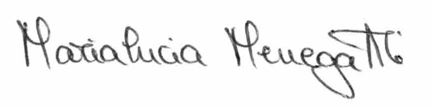 Marialucia Menegatti